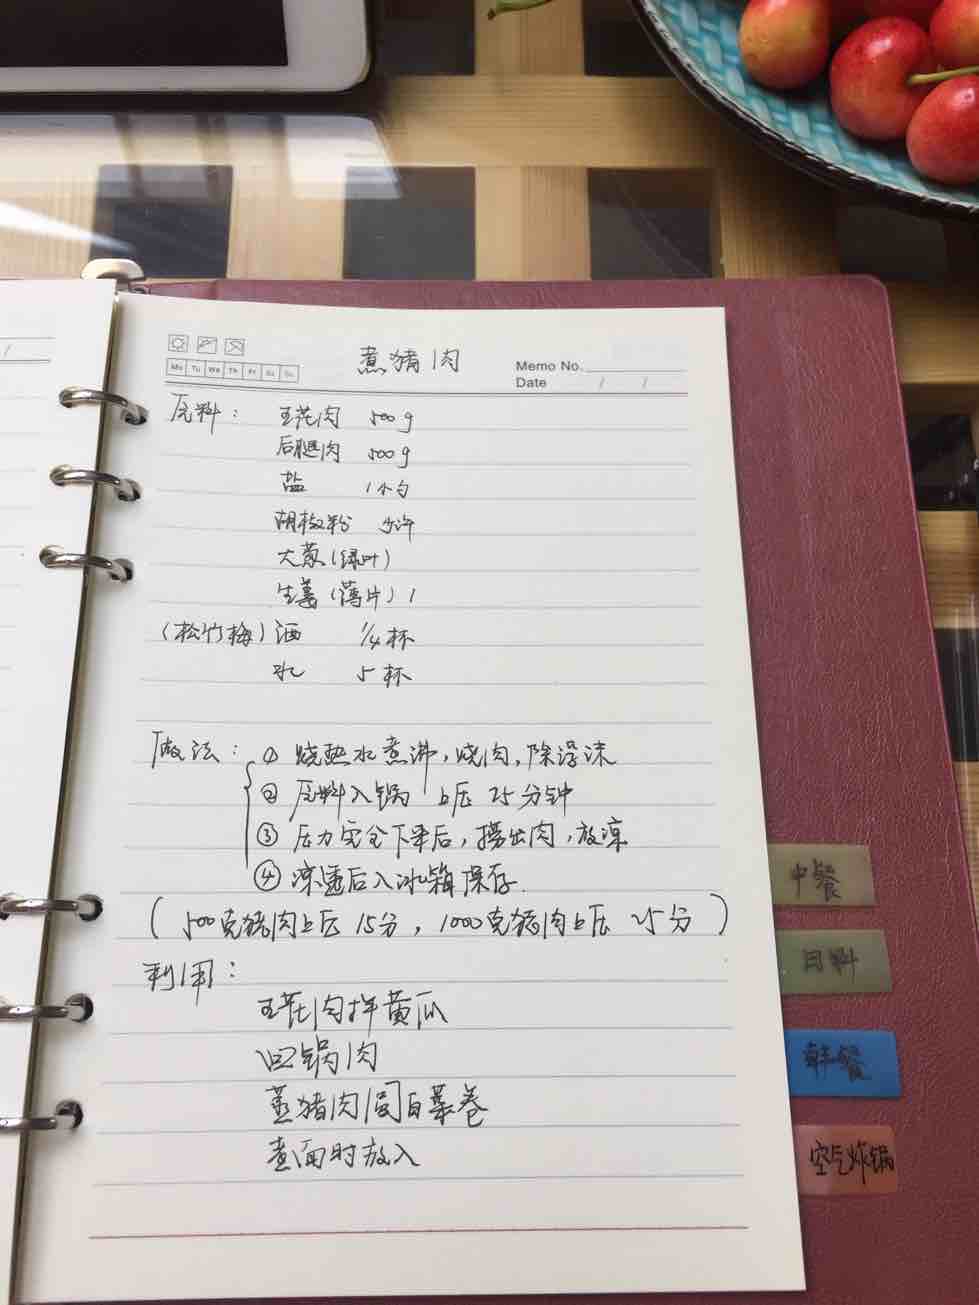 煮猪肉
Memo No.
Date / /
Mo Tu We Th Fr Sa Su
原料： 五花肉 500g
后腿肉 500g
盐 1小勺
胡椒粉 少许
大葱(绿叶)
生姜(薄片) 1
(松竹梅)酒 1/4杯
水 5杯
做法： ① 烧热水煮沸，烧肉，除浮沫
② 原料入锅 上压 25分钟
③ 压力完全下来后，捞出肉，放凉
④ 凉透后入冰箱保存.
(500克猪肉上压 15分，1000克猪肉上压 25分)
利用：
五花肉拌黄瓜
回锅肉
蒸猪肉圆白菜卷
煮面时放入
中餐
日料
韩餐
空气炸锅